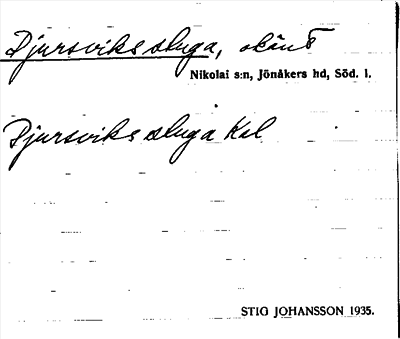 Djursviks stuga, okänt
Nikolai s:n, Jönåkers hd, Söd. l.
Djursviks stuga Kal
STIG JOHANSSON 1935.